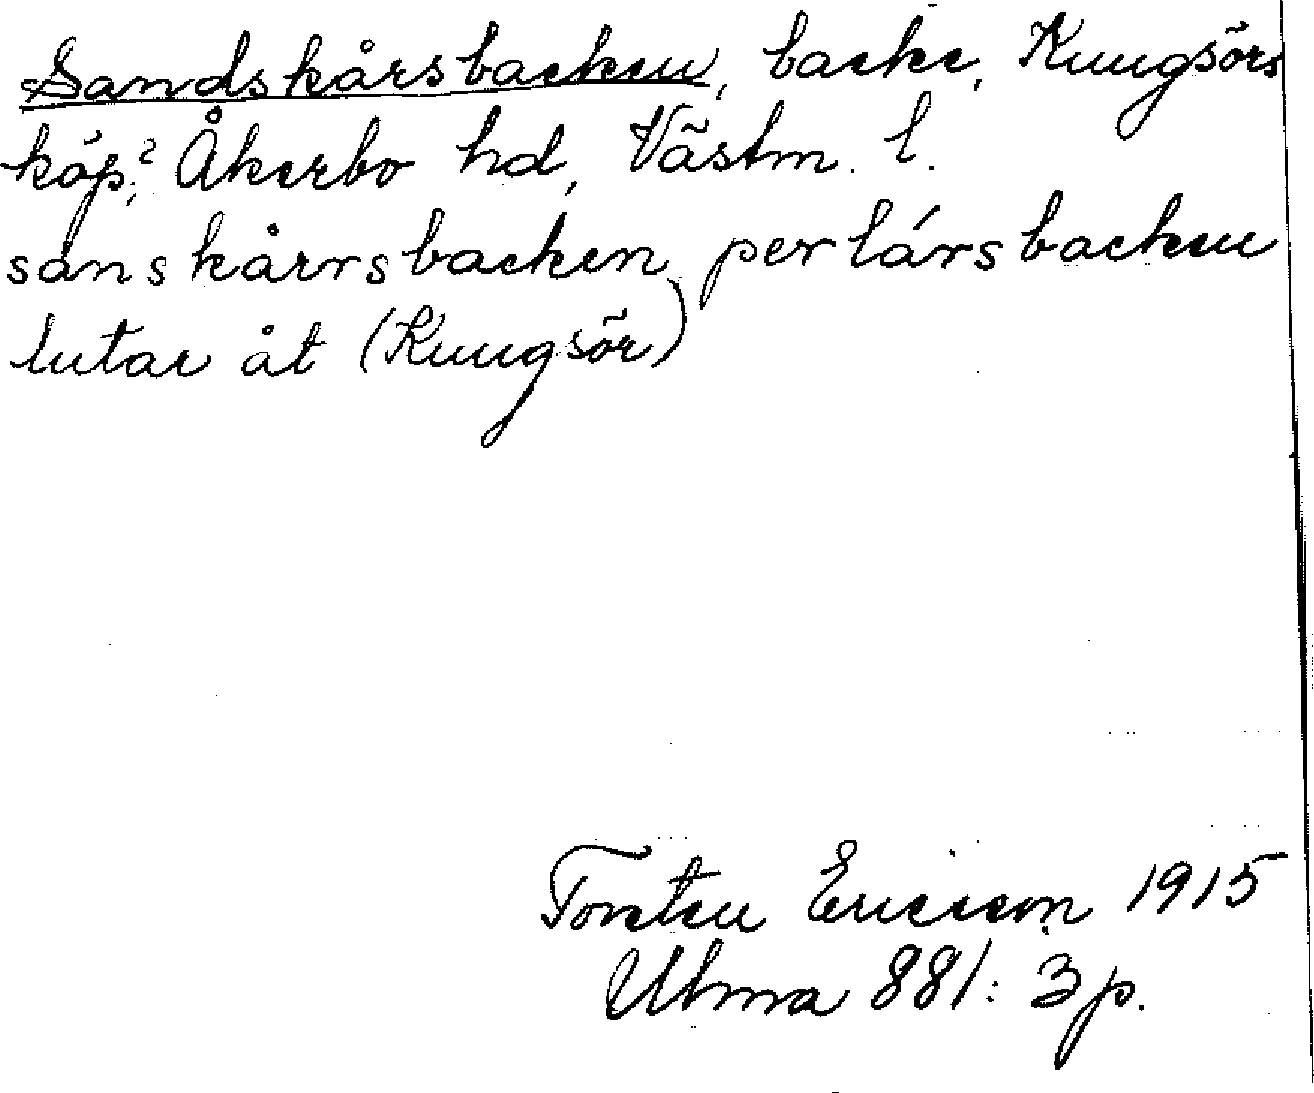 Sandskårsbacken, backe, Kungsörs
köp.? Åkerbo hd, Västm. l.
sånskårrsbacken perlársbacken
lutar åt (Kungsör)
Torsten Ericsson 1915
Ulma 881: 3 p.